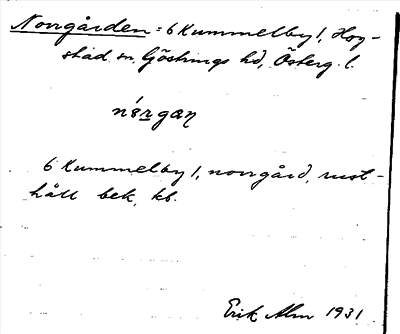 Norrgården = 6 Kummelby 1, Hog-
stad sn, Göstrings hd, Österg. l.
nórgæn
6 Kummelby 1, norrgård, rust-
håll bek. kb.
Erik Alm 1931